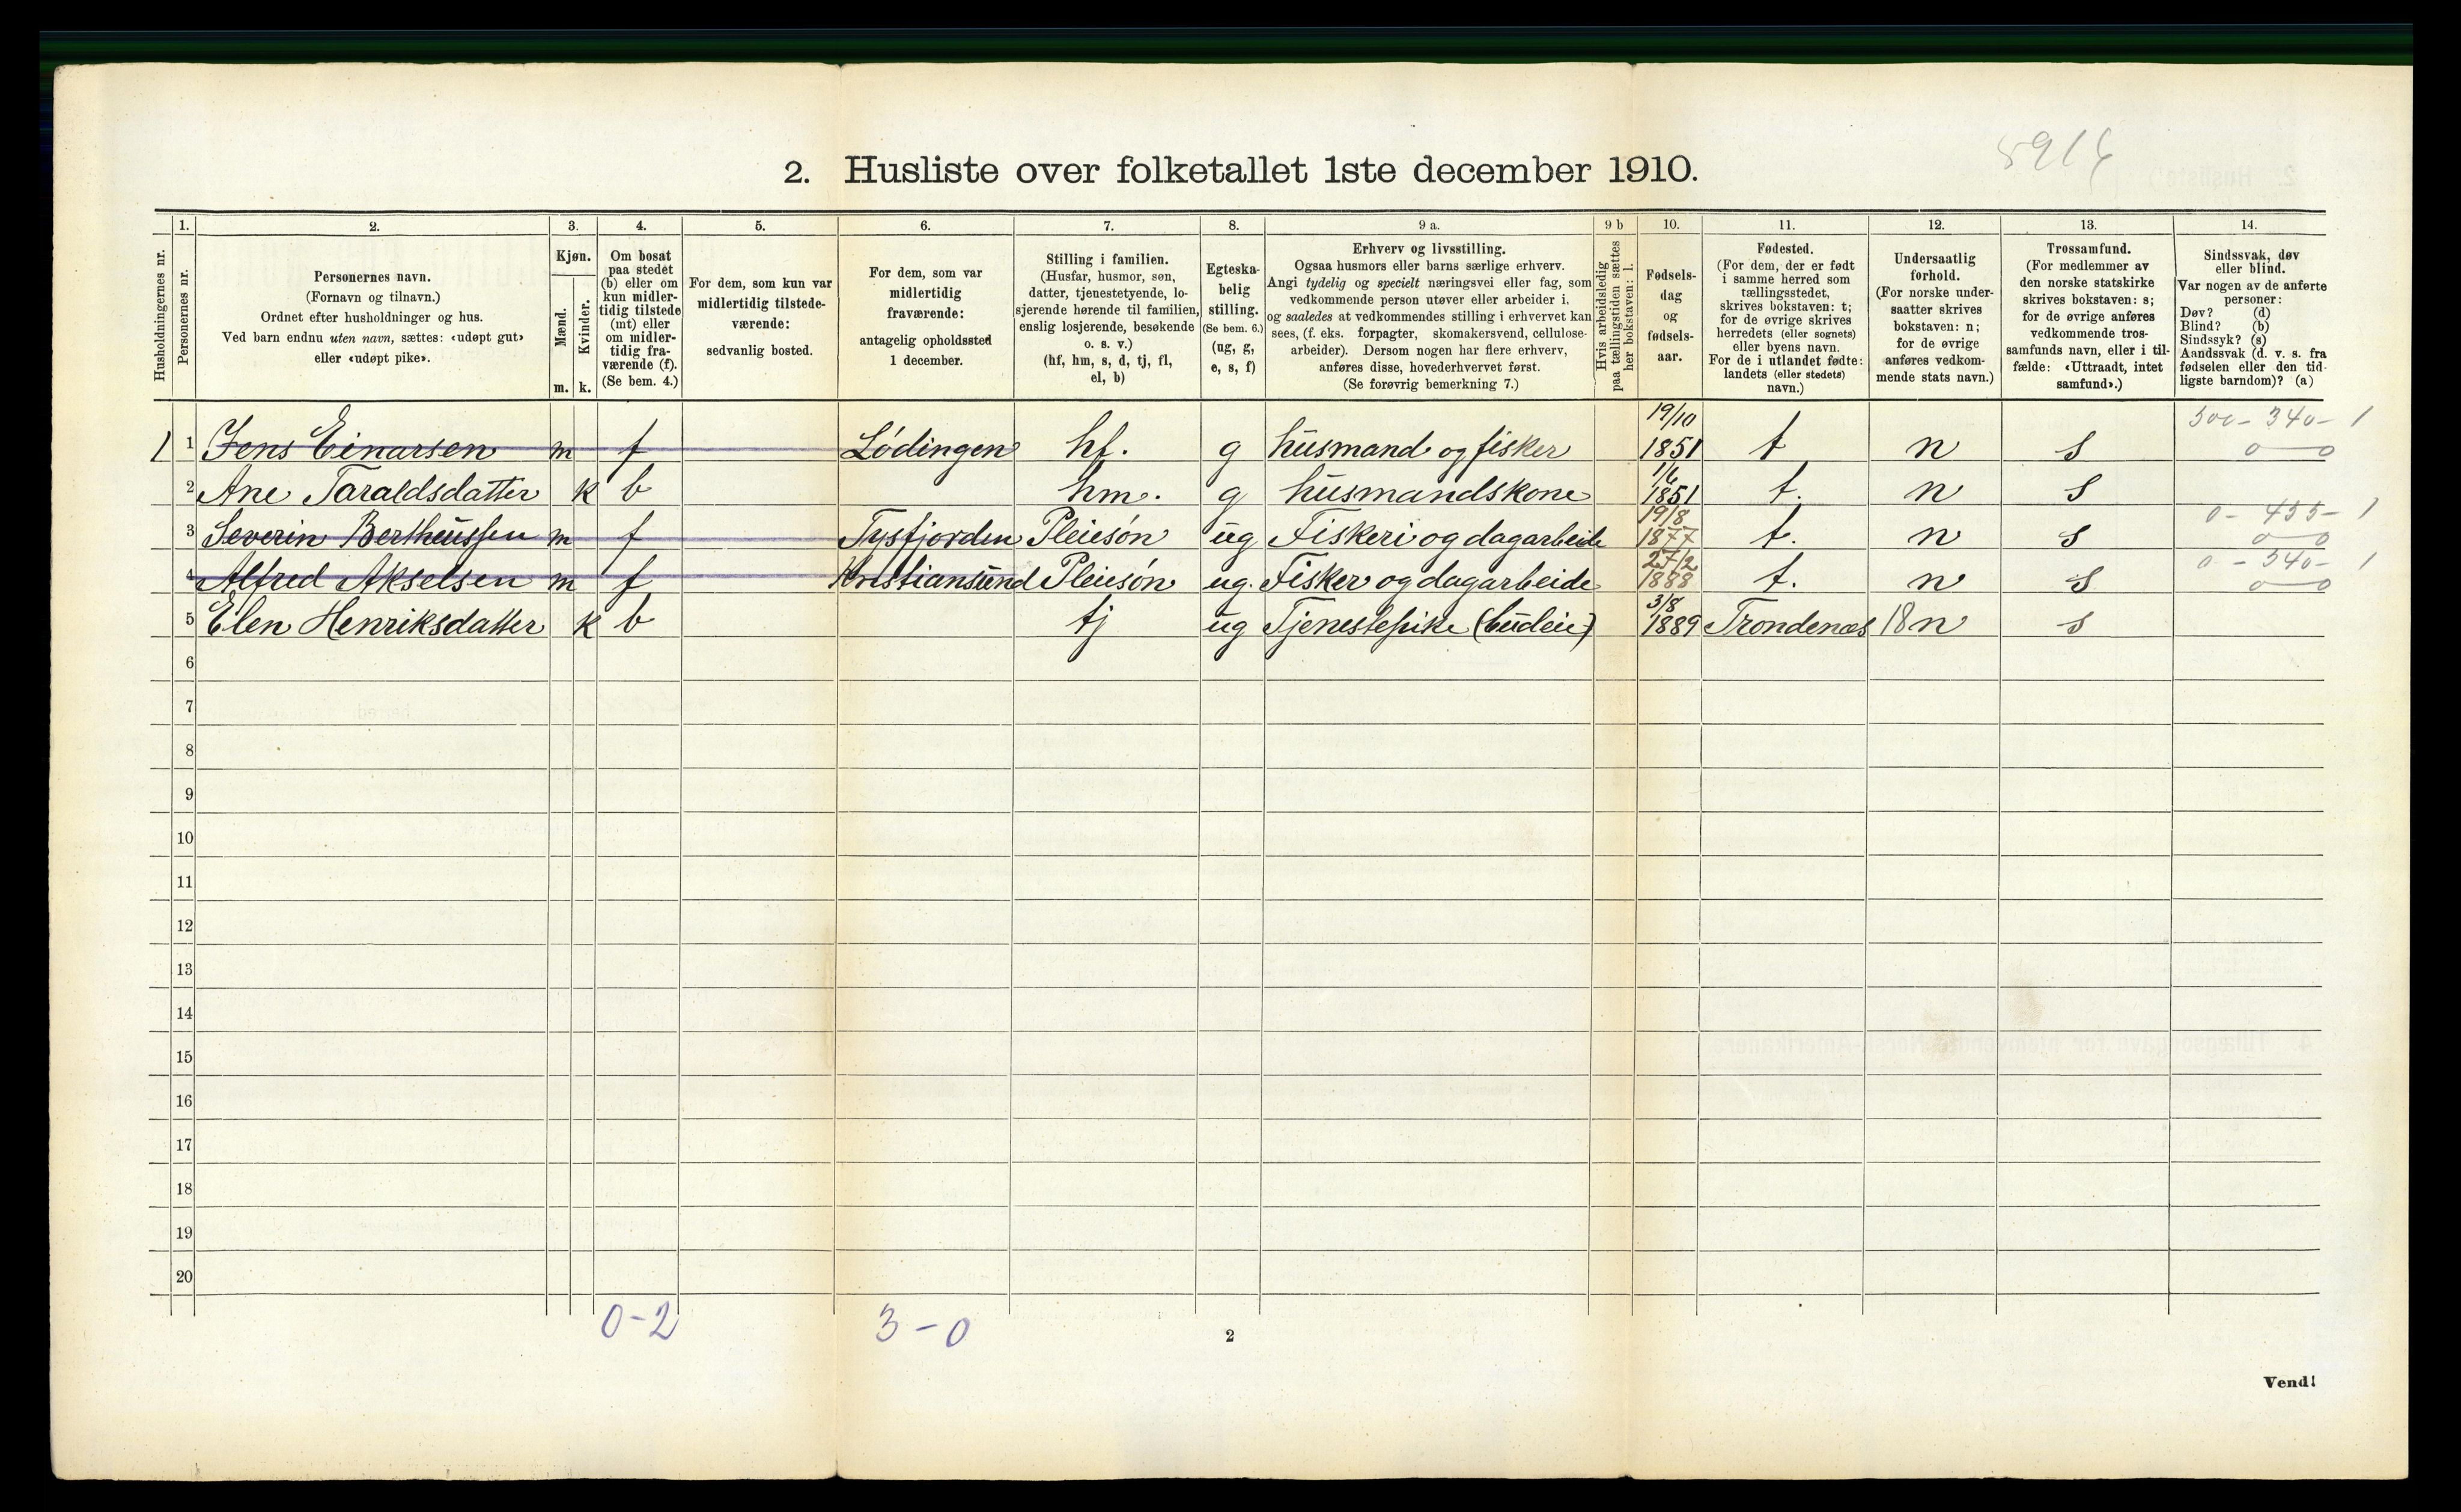 5916
2. Husliste over folketallet 1ste december 1910.
Husholdningernes nr.
1.
Personernes nr.
2.
Personernes navn.
(Fornavn og tilnavn.)
Ordnet efter husholdninger og hus.
Ved barn endnu uten navn, sættes: «udøpt gut»
eller «udøpt pike».
3.
Kjøn.
Mænd.
Kvinder.
m. k.
4.
Om bosat
paa stedet
(b) eller om
kun midler-
tidig tilstede
(mt) eller
om midler-
tidig fra-
værende (f).
(Se bem. 4.)
5.
For dem, som kun var
midlertidig tilstede-
værende:
sedvanlig bosted.
6.
For dem, som var
midlertidig
fraværende:
antagelig opholdssted
1 december.
7.
Stilling i familien.
(Husfar, husmor, søn,
datter, tjenestetyende, lo-
sjerende hørende til familien,
enslig losjerende, besøkende
o. s. v.)
(hf, hm, s, d, tj, fl,
el, b)
8.
Egteska-
belig
stilling.
(Se bem. 6.)
(ug, g,
e, s, f)
9 a.
Erhverv og livsstilling.
Ogsaa husmors eller barns særlige erhverv.
Angi tydelig og specielt næringsvei eller fag, som
vedkommende person utøver eller arbeider i,
og saaledes at vedkommendes stilling i erhvervet kan
sees, (f. eks. forpagter, skomakersvend, cellulose-
arbeider). Dersom nogen har flere erhverv,
anføres disse, hovederhvervet først.
(Se forøvrig bemerkning 7.)
9 b
Hvis arbeidsledig
paa tællingstiden sættes
her bokstaven: l.
10.
Fødsels-
dag
og
fødsels-
aar.
11.
Fødested.
(For dem, der er født
i samme herred som
tællingsstedet,
skrives bokstaven: t;
for de øvrige skrives
herredets (eller sognets)
eller byens navn.
For de i utlandet fødte:
landets (eller stedets)
navn.)
12.
Undersaatlig
forhold.
(For norske under-
saatter skrives
bokstaven: n;
for de øvrige
anføres vedkom-
mende stats navn.)
13.
Trossamfund.
(For medlemmer av
den norske statskirke
skrives bokstaven: s;
for de øvrige anføres
vedkommende tros-
samfunds navn, eller i til-
fælde: «Uttraadt, intet
samfund».)
14.
Sindssvak, døv
eller blind.
Var nogen av de anførte
personer:
Døv? (d)
Blind? (b)
Sindssyk? (s)
Aandssvak (d. v. s. fra
fødselen eller den tid-
ligste barndom)? (a)
19/10 300 - 340 - 1
1 1 Jens Einarsen m f Lødingen hf. g husmand og fisker 1851 t n s 0 0
1/6
2 Ane Taraldsdatter k b hm. g husmandskone 1851 t. n s
19/8 0 - 455 - 1
3 Severin Bertheussen m f Tysfjorden Pleiesøn ug Fiskeri og dagarbeide 1877 t. n s 0 0
27/2 0 - 340 - 1
4 Alfred Akselsen m f Kristiansund Pleiesøn ug. Fisker og dagarbeide 1888 t. n s 0 0
3/8
5 Elen Henriksdatter k b tj ug Tjenestepike (budeie) 1889 Trondenæs 18 n s
6
7
8
9
10
11
12
13
14
15
16
17
18
19
20
0-2 3-0
2
Vend!